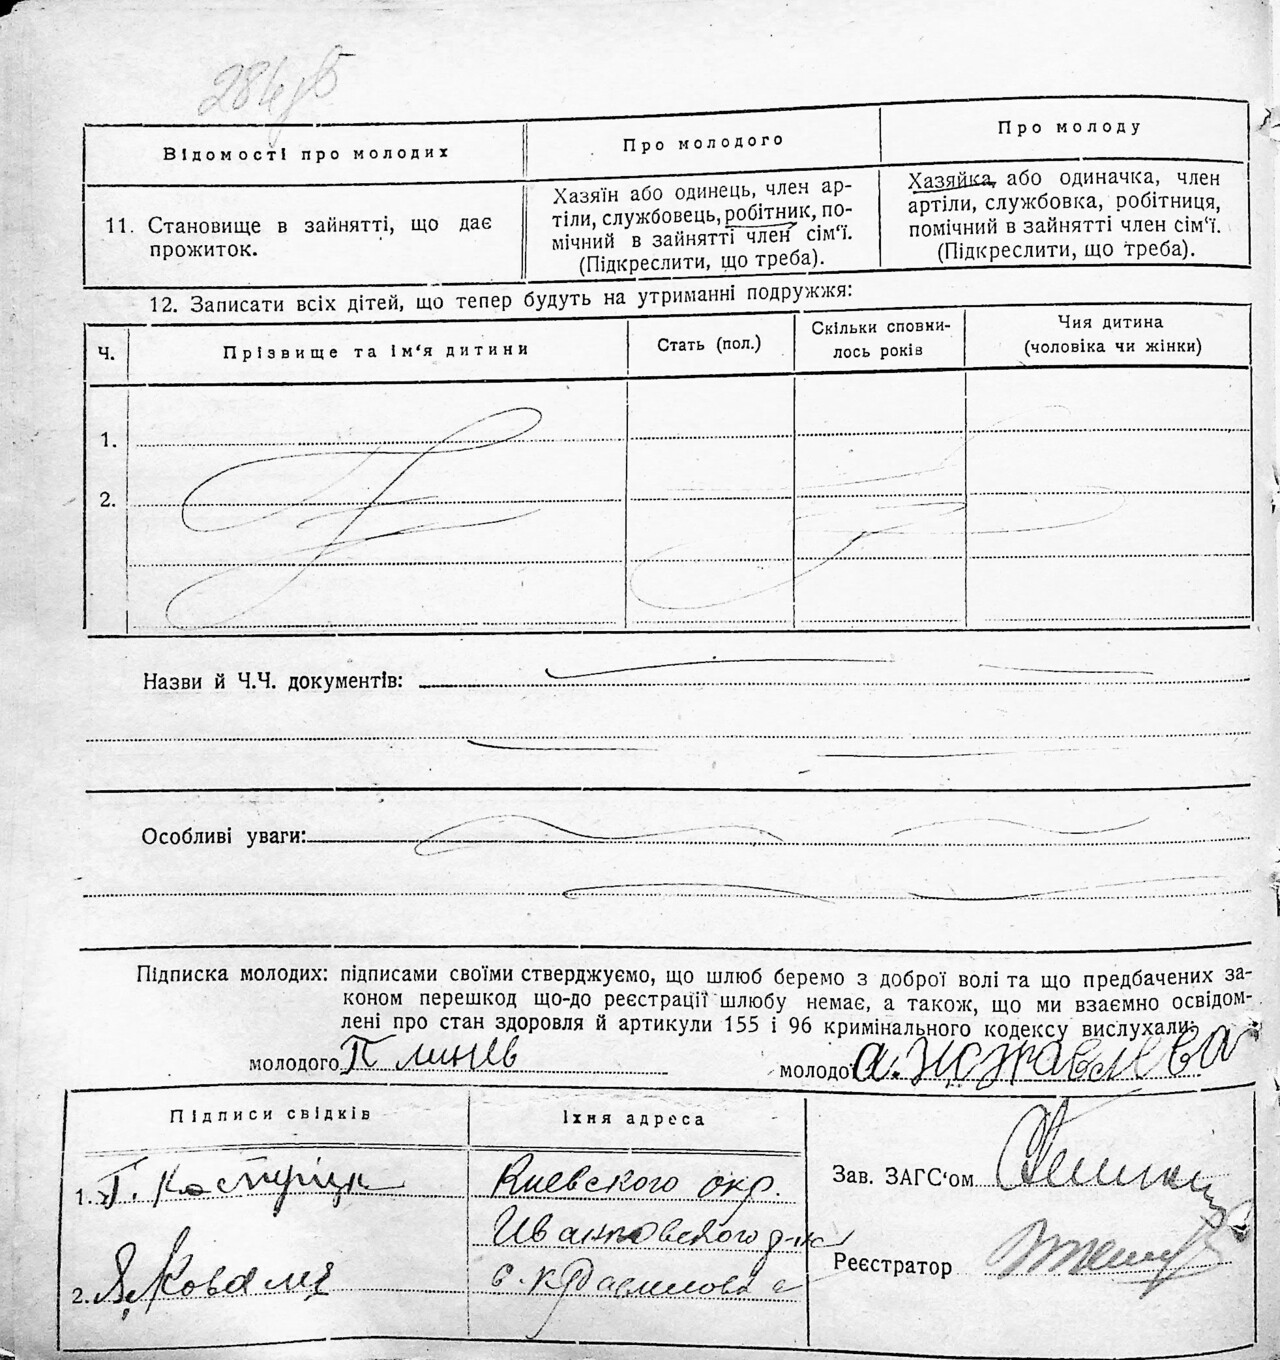 Відомості про молодих
Про молодого
Про молоду
11. Становище в зайнятті, що дає
прожиток.
Хазяїн або одинець, член ар-
тіли, службовець, робітник, по-
мічний в зайнятті член сім‘ї.
(Підкреслити, що треба).
Хазяйка, або одиначка, член
артіли, службовка, робітниця,
помічний в зайнятті член сім‘ї.
(Підкреслити, що треба).
12. Записати всіх дітей, що тепер будуть на утриманні подружжя:
Ч.
Прізвище та ім‘я дитини
Стать (пол.)
Скільки сповни-
лось років
Чия дитина
(чоловіка чи жінки)
1.
2.
Назви й Ч.Ч. документів:
Особливі уваги:
Підписка молодих: підписами своїми стверджуємо, що шлюб беремо з доброї волі та що предбачених за-
коном перешкод що-до реєстрації шлюбу немає, а також, що ми взаємно освідом-
лені про стан здоровля й артикули 155 і 96 кримінального кодексу вислухали:
молодого
молодої
Підписи свідків
Їхня адреса
1. Г.
Киевского окр.
Иванковского р-на
2. Я. Коваль
с.
Зав. ЗАГС‘ом
Реєстратор